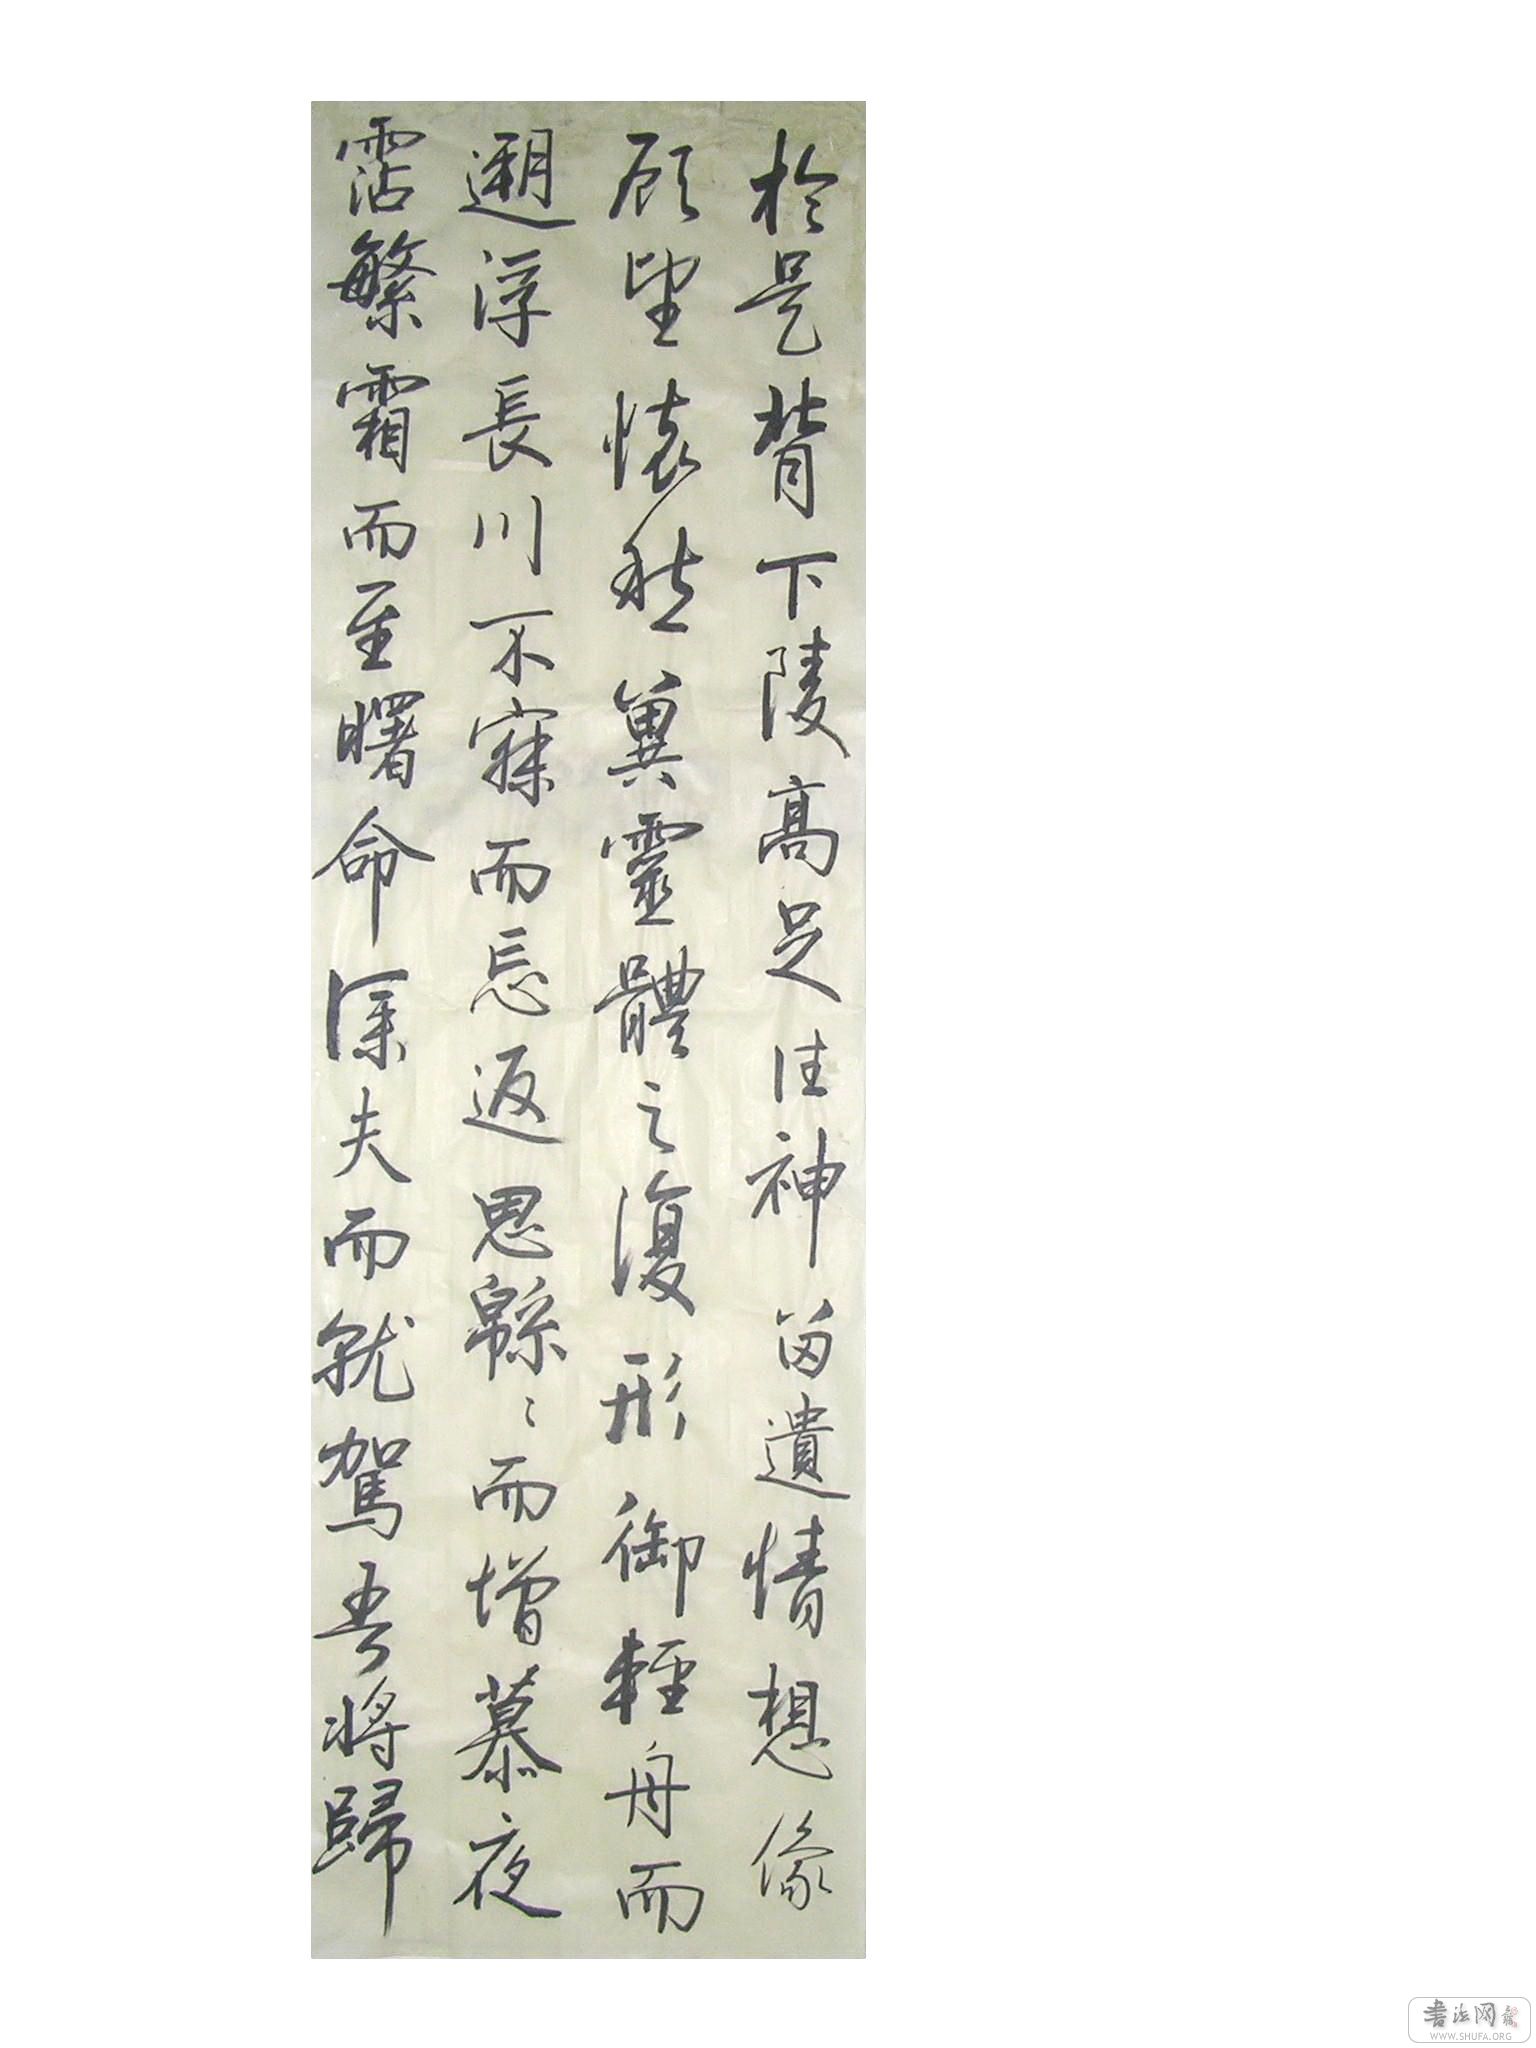 於是背下陵高足往神留遺情想像
顧望懷愁冀靈體之復形御輕舟而
遡浮長川不寐而忘返思緜〻而增慕夜
霑繁霜而至曙命僕夫而就駕吾將歸
書法网
WWW.SHUFA.ORG